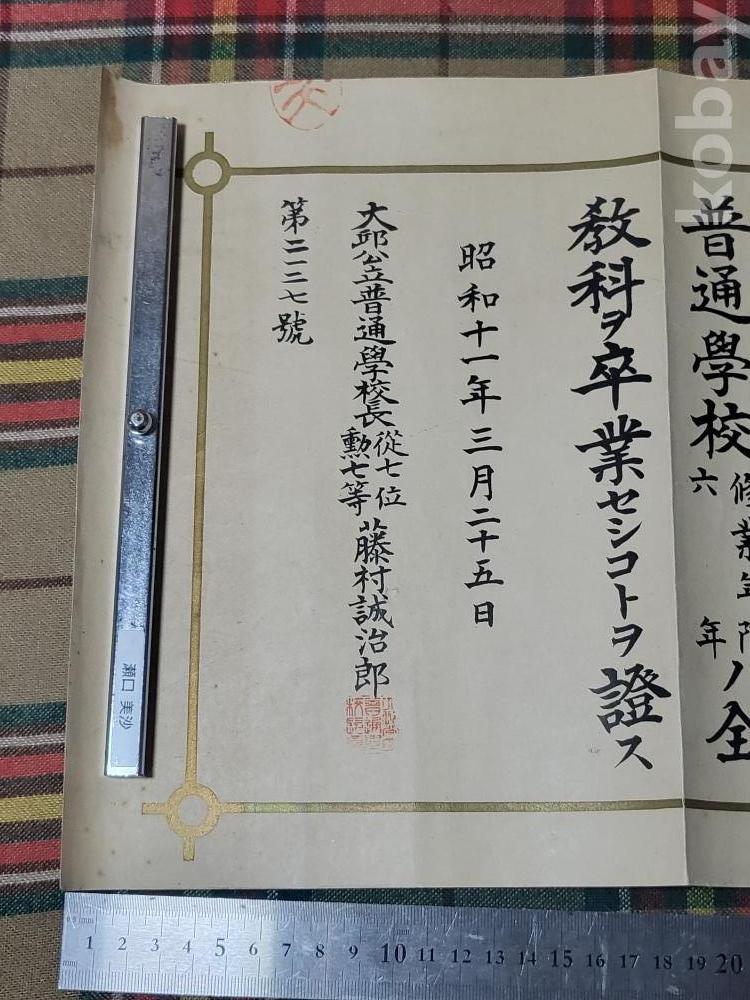 普通學校
修業年限
六年
ノ全
教科ヲ卒業セシコトヲ證ス
昭和十一年三月二十五日
大邱公立普通學校長
從七位
勲七等
藤村誠治郎
第二一三七號
瀬口 美沙
kobay
1 2 3 4 5 6 7 8 9 10 11 12 13 14 15 16 17 18 19 20